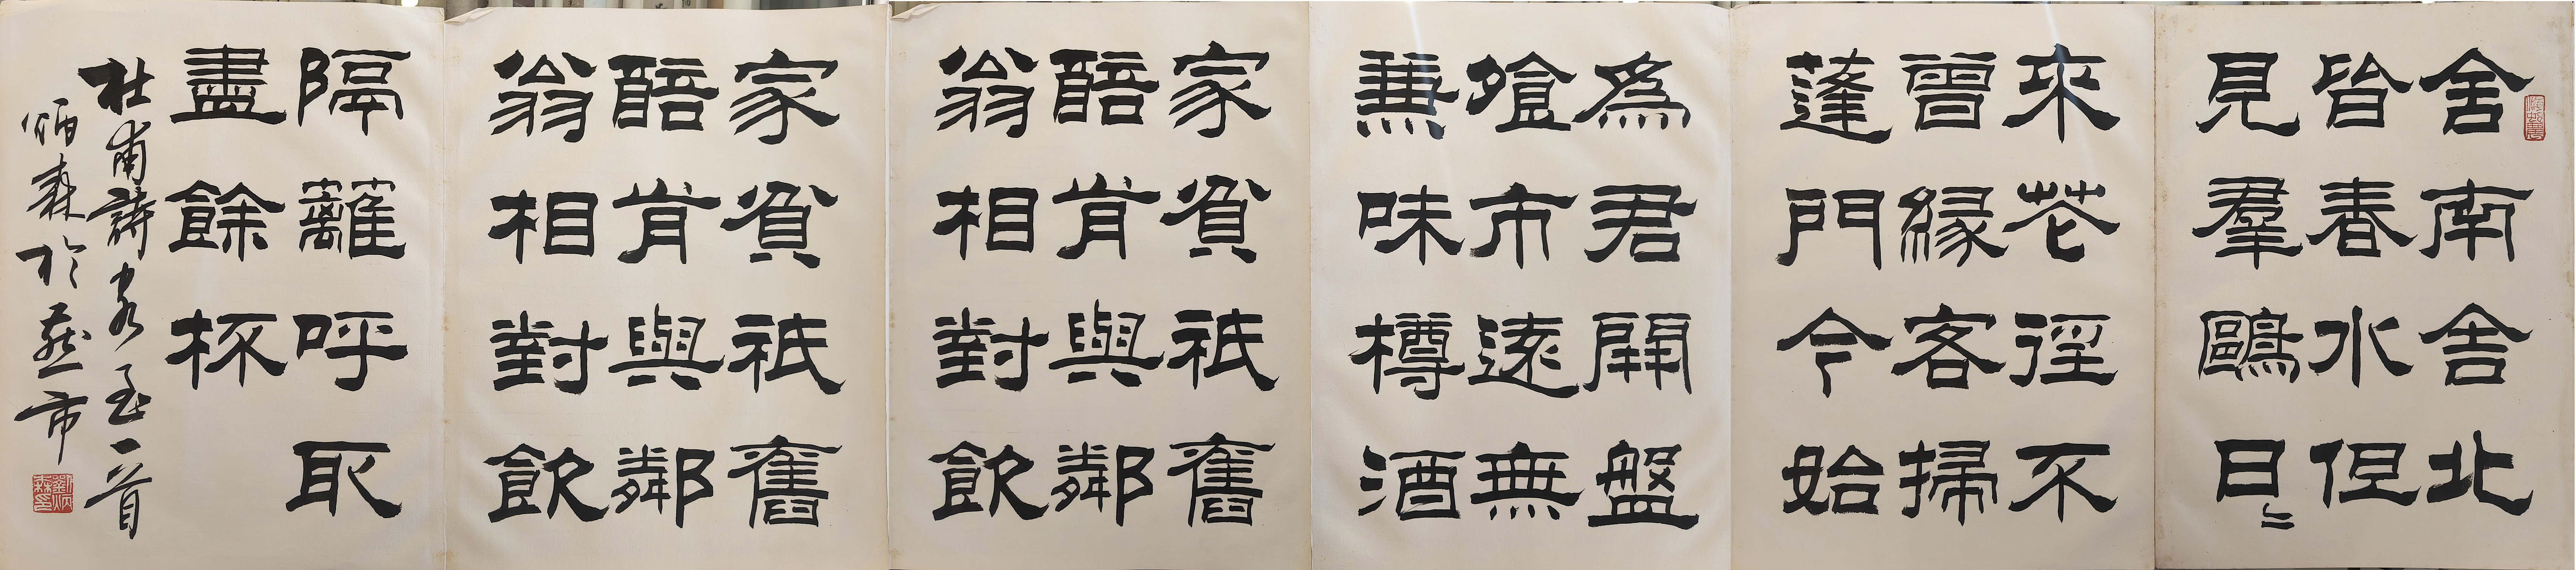 舍南舍北
皆春水但
見羣鷗日〻
來花徑不
曾緣客掃
蓬門今始
為君開盤
飧市遠無
兼味樽酒
家貧祗舊
醅肯與鄰
翁相對飲
家貧祗舊
醅肯與鄰
翁相對飲
隔籬呼取
盡餘杯
杜甫詩客至一首
炳森於燕市
劉炳森印